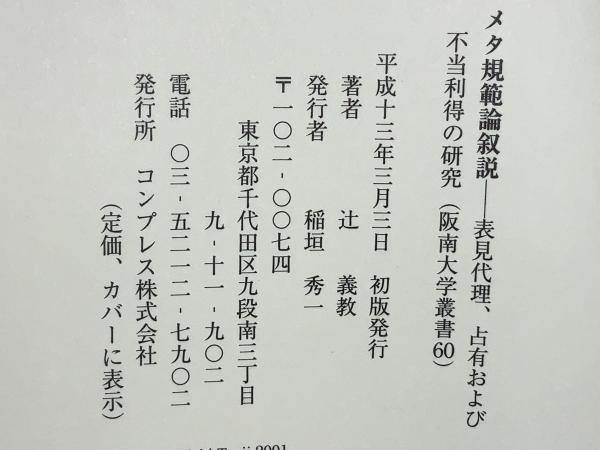 メタ規範論叙説──表見代理、占有および
不当利得の研究（阪南大学叢書60）
平成十三年三月三日　初版発行
著者　辻　義教
発行者　稲垣　秀一
〒一〇二-〇〇七四
東京都千代田区九段南三丁目
九-十一-九〇二
電話　〇三-五二一二-七九〇二
発行所　コンプレス株式会社
（定価、カバーに表示）
2001